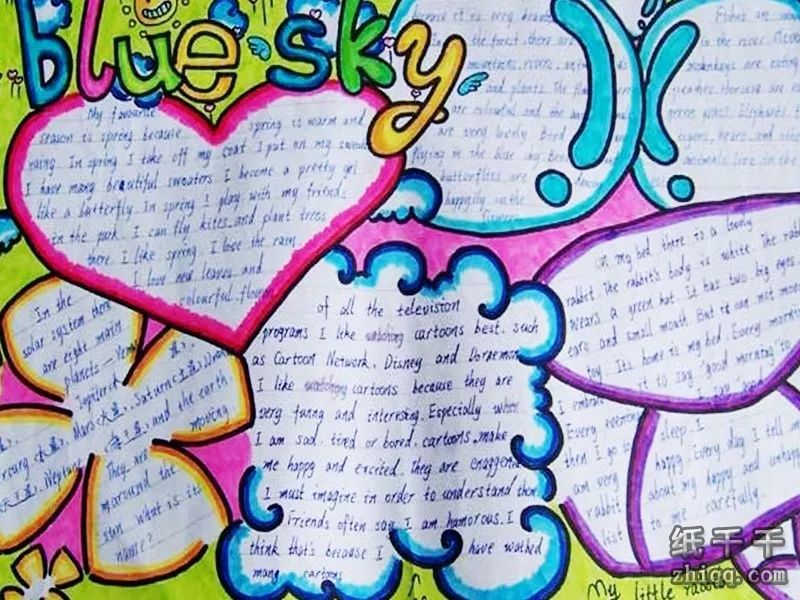 blue sky
My favourite
season is spring because spring is warm and
In spring I take off my coat I put on my
I have many beautiful sweaters I become a pretty girl
like a butterfly. In spring I play with my friends
in the park. I can fly kites and plant trees
there. I like spring. I love the rain
I love new leaves and
colourful flower
because it is very
In the forest, there are
mountains, rivers,
and plants. The
are colourful and the
are very lovely. Bird
flying in the blue sky.
butterflies are dancing
happily in the
flowers
Fishes are
in the river.
monkeys are eating
peaches. Horses are
green grass. Elephants,
animals live in the
In the
solar system there
are eight main
planets
Jupiter(木星), Saturn(土星),
Mars and the earth.
Neptune They are moving
around the
sun. What is its
name?
of all the television
programs I like cartoons best. Such
as Cartoon Network, Disney and Doraemon
I like cartoons because they are
very funng and interesting. Especially when
I am sad, tired or bored, cartoons make
me happy and excited. They are
I must imagine in order to understand them
Friends often say I am humorous. I
think that's because I have wathed
mang cartoons
On my bed there is a lovely
rabbit. The rabbit's body is white. The rabbit
wears a green hat. It has two big eyes
ears and small mouth. But it can not move
toy. Its home is my bed. Every morning
I embrace it to say "good morning" to
Every evening
then I go to sleep. I
am very happy. Every day I tell my
rabbit about my happy and unhappy
list to me carefully.
My little rabbit
纸千千
zhiqq.com